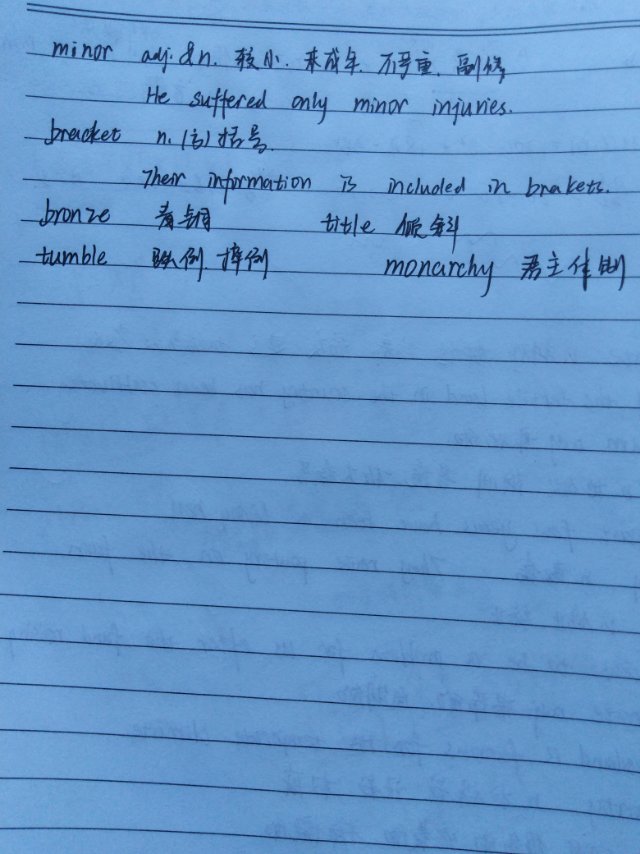 minor adj. & n. 较小. 未成年. 不严重. 副修
He suffered only minor injuries.
bracket n. (方)括号.
Their information is included in brakets.
bronze 青铜 title 倾斜
tumble 跌倒. 摔倒 monarchy 君主体制